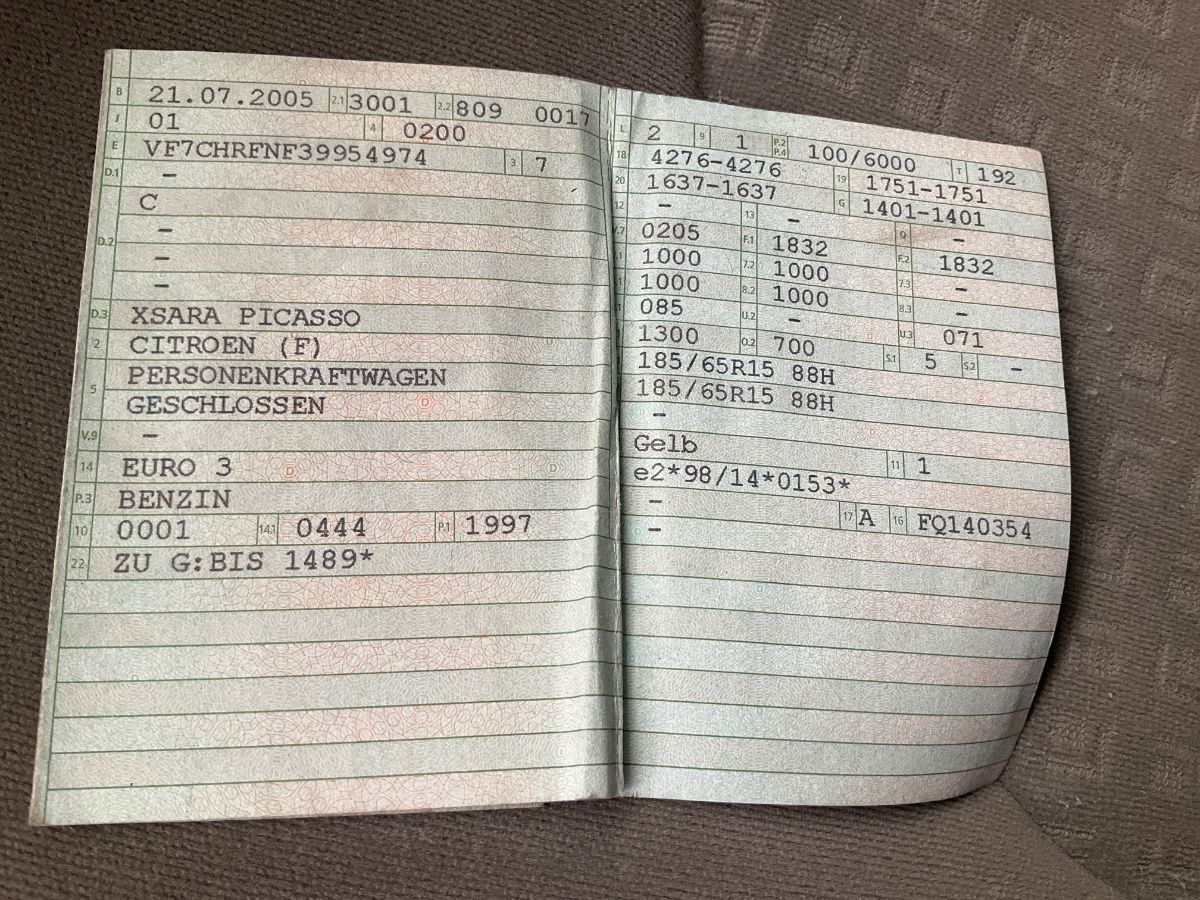 B 21.07.2005 2.1 3001 2.2 809 0017
J 01 4 0200
E VF7CHRFNF39954974 3 7
D.1 -
C
D.2 -
-
-
D.3 XSARA PICASSO
2 CITROEN (F)
5 PERSONENKRAFTWAGEN
GESCHLOSSEN
V.9 -
14 EURO 3
P.3 BENZIN
10 0001 14.1 0444 P.1 1997
22 ZU G:BIS 1489*
L 2 9 1 P.2 P.4 100/6000 T 192
18 4276-4276 19 1751-1751
20 1637-1637 G 1401-1401
12 - 13 - Q -
V.7 0205 F.1 1832 F.2 1832
1000 7.2 1000 7.3 -
1000 8.2 1000 8.3 -
085 U.2 - U.3 071
1300 O.2 700 S.1 5 S.2 -
185/65R15 88H
185/65R15 88H
-
Gelb 11 1
e2*98/14*0153*
- 17 A 16 FQ140354
-